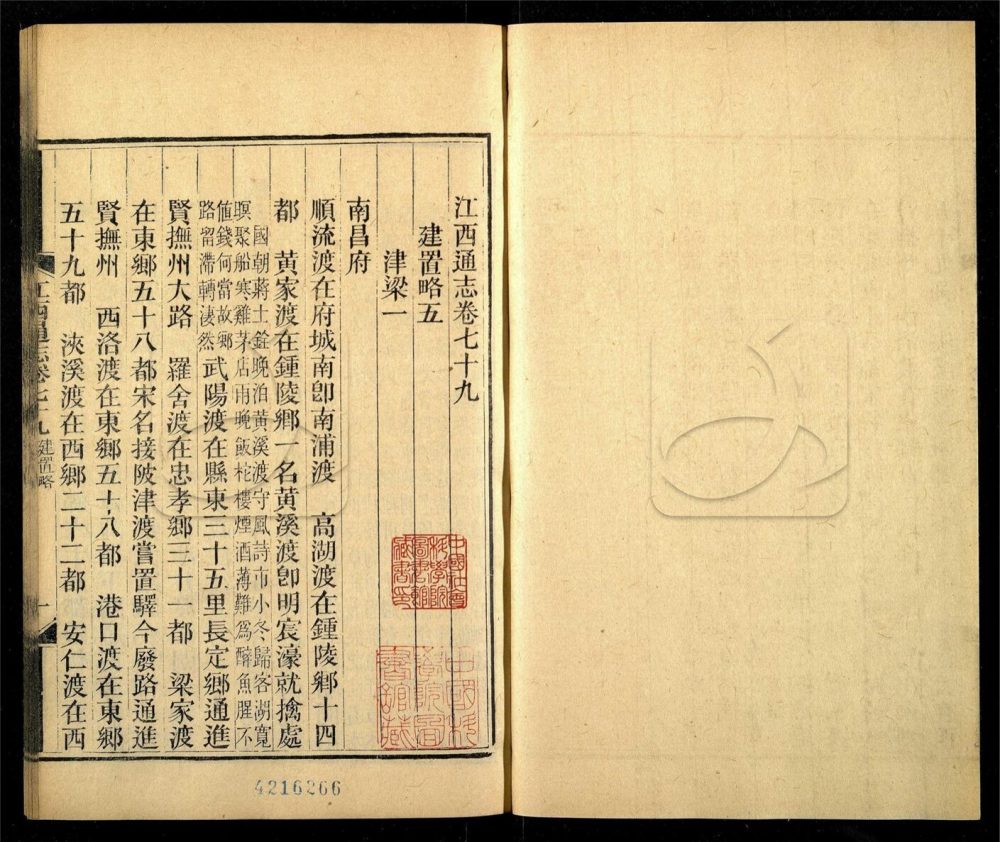 江西通志卷七十九
建置略五
津梁一
南昌府
順流渡在府城南卽南浦渡　高湖渡在鍾陵鄉十四
都　黃家渡在鍾陵鄉一名黃溪渡卽明宸濠就擒處
國朝蔣士銓晚泊黃溪渡守風詩市小冬歸客湖寬
暝聚船寒雞茅店雨晚飯柁樓煙酒薄難爲醉魚腥不
値錢何當故鄉
路留滯轉淒然
武陽渡在縣東三十五里長定鄉通進
賢撫州大路　羅舍渡在忠孝鄉三十一都　梁家渡
在東鄉五十八都宋名接陂津渡嘗置驛今廢路通進
賢撫州　西洛渡在東鄉五十八都　港口渡在東鄉
五十九都　浹溪渡在西鄉二十二都　安仁渡在西
江西通志卷七十九 建置略 一
中國社會
科學院
圖書館
藏書印
中國科
學院圖
書館藏
4216266